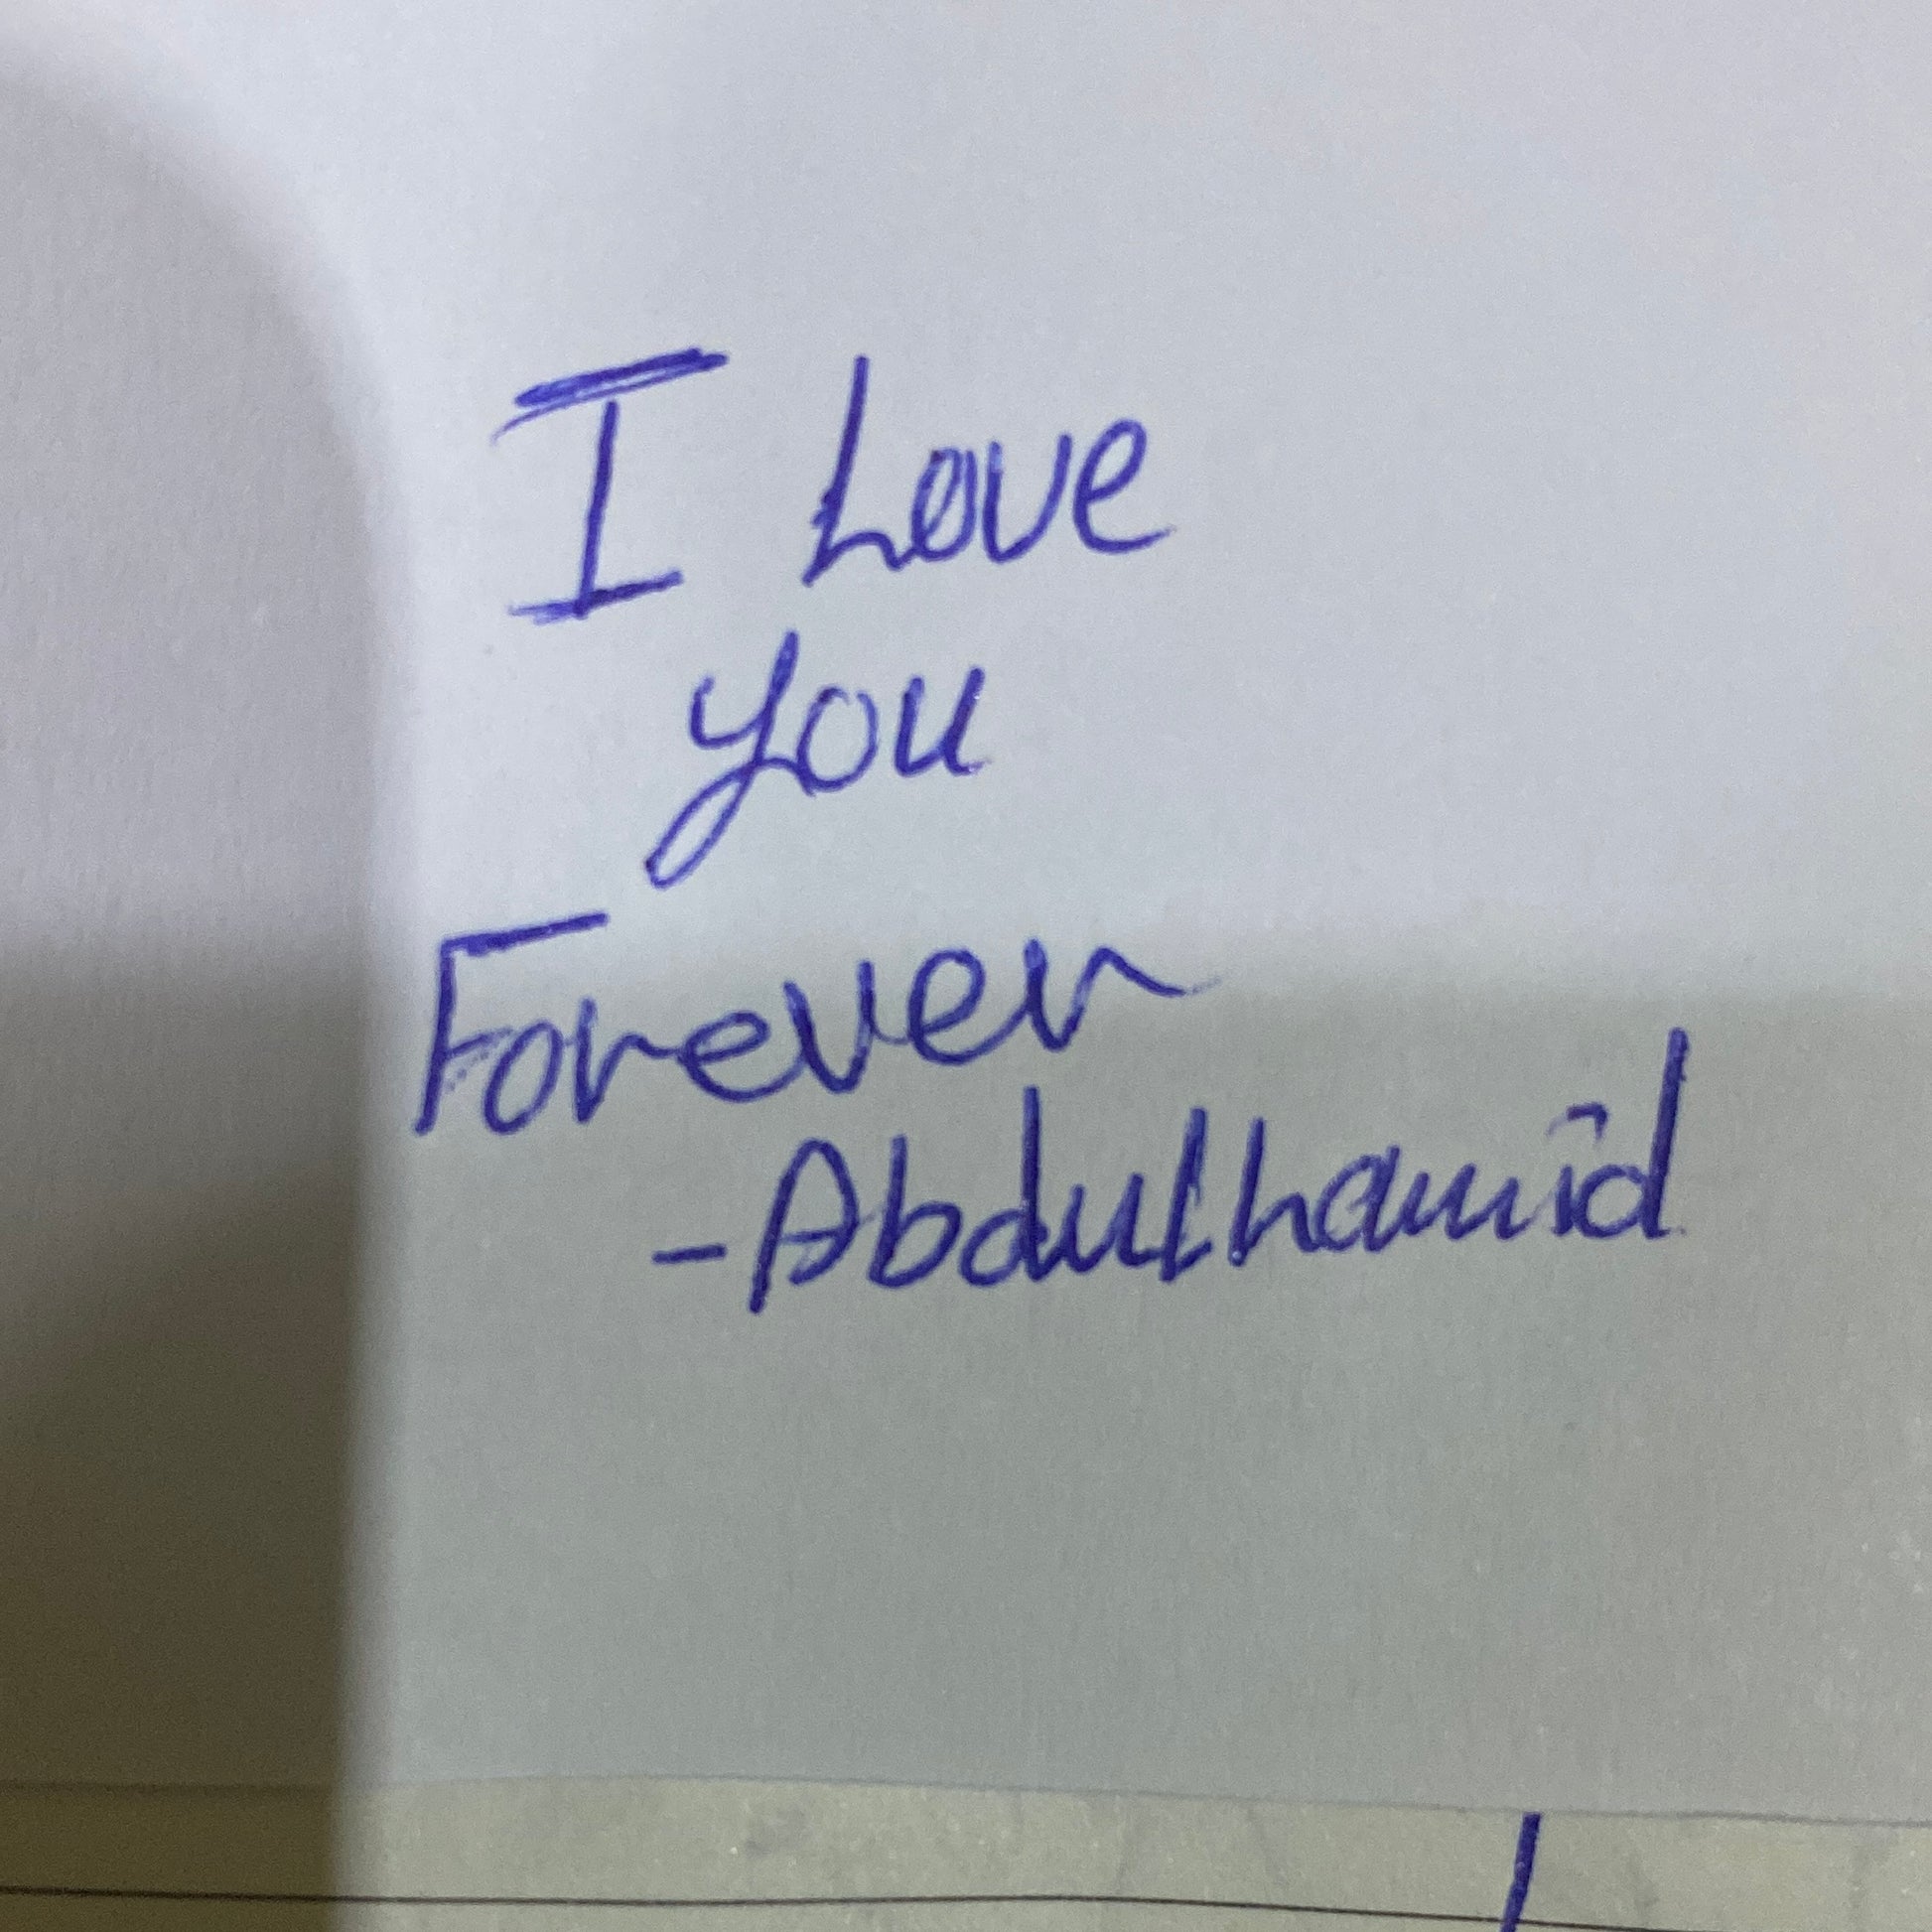 I Love
you
Forever
-Abdulhamid